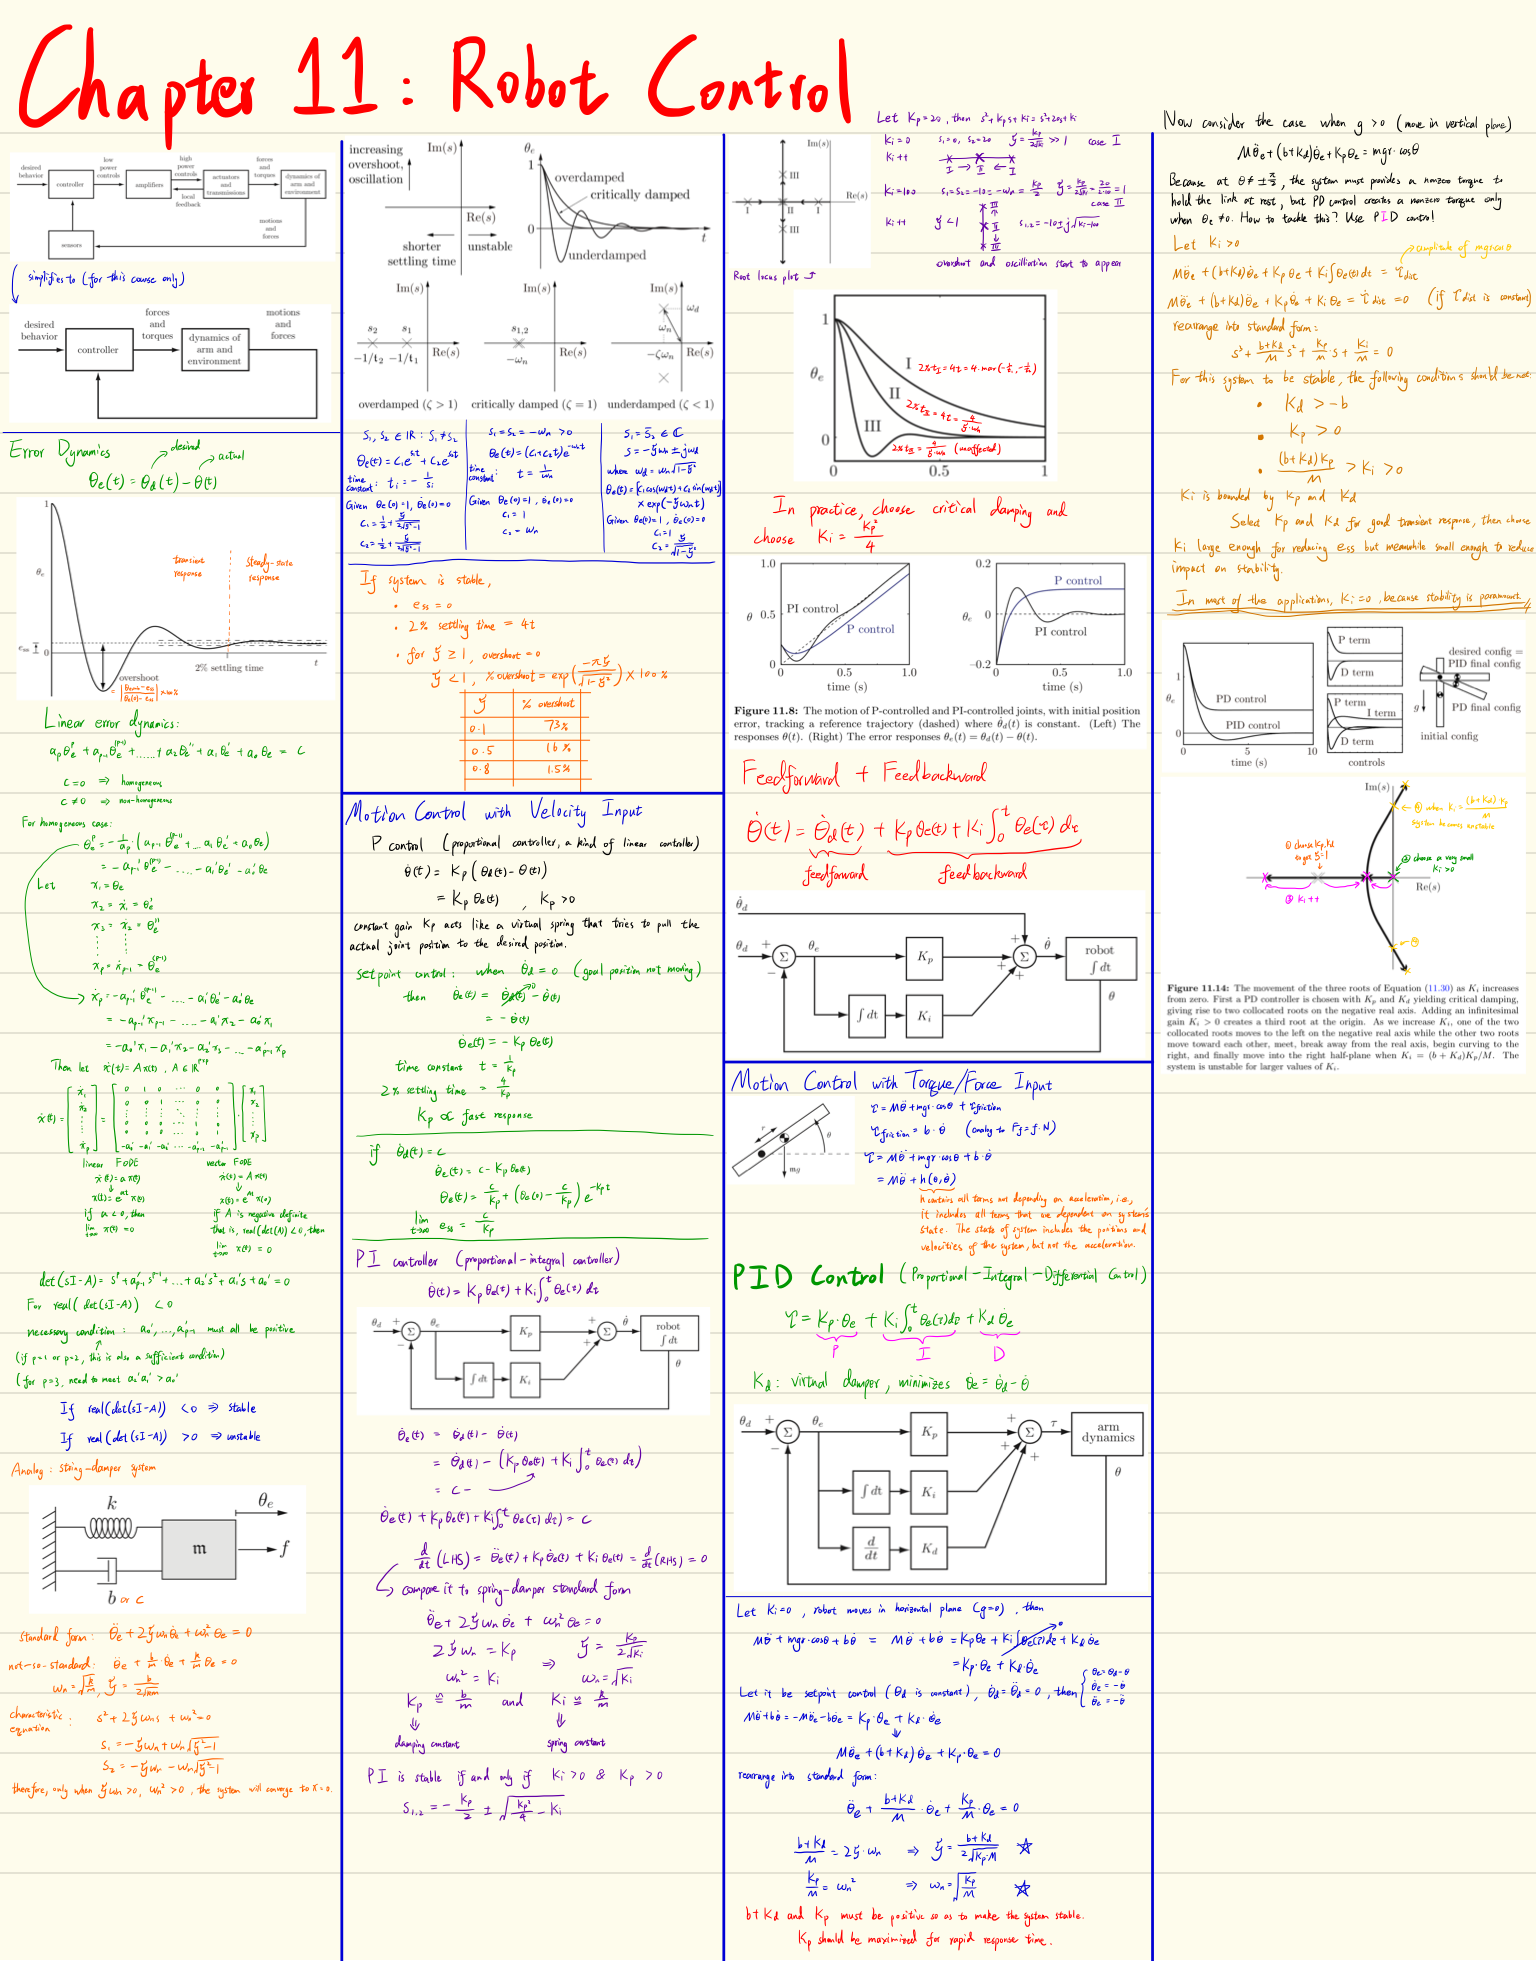 Chapter 11: Robot Control
desired behavior
controller
low power controls
amplifiers
high power controls
local feedback
actuators and transmissions
forces and torques
dynamics of arm and environment
motions and forces
sensors
simplifies to (for this course only)
desired behavior
controller
forces and torques
dynamics of arm and environment
motions and forces
Error Dynamics
desired
actual
θe(t) = θd(t) - θ(t)
1
θe
transient response
steady-state response
ess
0
overshoot
2% settling time
t
Linear error dynamics:
c=0 ⇒ homogeneous
c≠0 ⇒ non-homogeneous
For homogeneous case:
Let x1 = θe
x2 = ẋ1 = θe'
x3 = ẋ2 = θe''
Then let ẋ(t) = Ax(t), A ∈ R^pxp
linear FODE
vector FODE
ẋ(t) = a x(t)
ẋ(t) = A x(t)
x(t) = e^at x(0)
x(t) = e^At x(0)
if a<0, then
lim x(t) = 0
if A is negative definite
that is, real(det(A)) <0, then
lim x(t) = 0
For real(det(sI-A)) <0
necessary condition: a0', ..., a'p-1 must all be positive
(if p=1 or p=2, this is also a sufficient condition)
(for p=3, need to meet a2'a1' > a0')
If real(det(sI-A)) <0 ⇒ stable
If real(det(sI-A)) >0 ⇒ unstable
Analog: string-damper system
k
θe
m
f
b or c
standard form: θ̈e + 2ζωnθ̇e + ωn²θe = 0
not-so-standard: θ̈e + b/m θ̇e + k/m θe = 0
ωn = √(k/m), ζ = b/(2√km)
characteristic equation: s² + 2ζωns + ωn² = 0
s1 = -ζωn + ωn√(ζ²-1)
s2 = -ζωn - ωn√(ζ²-1)
therefore, only when ζωn >0, ωn² >0, the system will converge to x=0.
increasing overshoot, oscillation
Im(s)
Re(s)
shorter settling time
unstable
θe
1
overdamped
critically damped
0
t
underdamped
Im(s)
s2
s1
-1/t2
-1/t1
Re(s)
Im(s)
s1,2
-ωn
Re(s)
Im(s)
ωd
ωn
Re(s)
-ζωn
overdamped (ζ > 1)
critically damped (ζ = 1)
underdamped (ζ < 1)
s1, s2 ∈ IR : s1 ≠ s2
θe(t) = c1e^s1t + c2e^s2t
time constant: ti = -1/si
Given θe(0)=1, θ̇e(0)=0
s1 = s2 = -ωn > 0
θe(t) = (c1+c2t)e^-ωnt
time constant: t = 1/ωn
Given θe(0)=1, θ̇e(0)=0
c1 = 1
c2 = ωn
s1 = s̄2 ∈ C
s = -ζωn ± jωd
where ωd = ωn√(1-ζ²)
θe(t) = [c1cos(ωdt) + c2sin(ωdt)]
× exp(-ζωnt)
Given θe(0)=1, θ̇e(0)=0
c1 = 1
c2 = ζ/√(1-ζ²)
If system is stable,
• ess = 0
• 2% settling time = 4t
• for ζ ≥ 1, overshoot = 0
ζ < 1, % overshoot = exp(-πζ/√(1-ζ²)) × 100%
ζ % overshoot
0.1 73%
0.5 16%
0.8 1.5%
Motion Control with Velocity Input
P control (proportional controller, a kind of linear controller)
θ̇(t) = Kp(θd(t) - θ(t))
= Kp θe(t), Kp >0
constant gain Kp acts like a virtual spring that tries to pull the
actual joint position to the desired position.
setpoint control: when θ̇d = 0 (goal position not moving)
then θ̇e(t) = θ̇d(t) - θ̇(t)
= -θ̇(t)
θ̇e(t) = -Kp θe(t)
time constant t = 1/Kp
2% settling time = 4/Kp
Kp ∝ fast response
if θ̇d(t) = c
θ̇e(t) = c - Kp θe(t)
θe(t) = c/Kp + (θe(0) - c/Kp) e^-Kpt
lim t→∞ ess = c/Kp
PI controller (proportional-integral controller)
θ̇(t) = Kp θe(t) + Ki∫0^t θe(τ) dτ
θd
+
−
Σ
θe
Kp
∫dt
Ki
+
+
Σ
θ̇
robot
∫dt
θ
θ̇e(t) = θ̇d(t) - θ̇(t)
= θ̇d(t) - (Kp θe(t) + Ki∫0^t θe(τ) dτ)
= c -
θ̇e(t) + Kp θe(t) + Ki∫0^t θe(τ) dτ = c
d/dt (LHS) = θ̈e(t) + Kp θ̇e(t) + Ki θe(t) = d/dt (RHS) = 0
compare it to spring-damper standard form
θ̈e + 2ζωnθ̇e + ωn²θe = 0
2ζωn = Kp
ωn² = Ki
⇒
ζ = Kp/(2√Ki)
ωn = √Ki
Kp ≌ b/m and Ki ≌ k/m
damping constant
spring constant
PI is stable if and only if Ki>0 & Kp >0
s1,2 = -Kp/2 ± √(Kp²/4 - Ki)
Im(s)
III
Re(s)
I
II
I
III
Root locus plot
Let Kp = 20, then s²+Kps+Ki = s²+20s+Ki
Ki = 0 s1=0, s2=20 ζ = Kp/(2√Ki) >> 1 case I
Ki ++
Ki = 100 s1=s2=-10=-ωn = Kp/2 ζ = Kp/(2√Ki) = 20/(2·10) = 1
case II
Ki ++ ζ <1 s1,2 = -10 ± j√(Ki-100)
overshoot and oscillation start to appear
1
θe
0
I
II
III
0
0.5
1
(unaffected)
In practice, choose critical damping and
choose Ki = Kp²/4
1.0
θ 0.5
0
PI control
P control
0.5
1.0
time (s)
0.2
θe 0
−0.2
P control
PI control
0.5
1.0
time (s)
Figure 11.8: The motion of P-controlled and PI-controlled joints, with initial position
error, tracking a reference trajectory (dashed) where θ̇d(t) is constant. (Left) The
responses θ(t). (Right) The error responses θe(t) = θd(t) − θ(t).
Feedforward + Feedbackward
θ̇(t) = θ̇d(t) + Kp θe(t) + Ki∫0^t θe(τ) dτ
feedforward
feedbackward
θ̇d
θd
+
−
Σ
θe
Kp
∫dt
Ki
+
+
+
Σ
θ̇
robot
∫dt
θ
Motion Control with Torque/Force Input
τ
θ
mg
τ = Mθ̈ + mgr·cosθ + τfriction
τfriction = b·θ̇ (analog to Ff = f·N)
τ = Mθ̈ + mgr·cosθ + b·θ̇
= Mθ̈ + h(θ,θ̇)
h contains all terms not depending on acceleration, i.e.,
it includes all terms that are dependent on system's
state. The state of system includes the positions and
velocities of the system, but not the acceleration.
PID Control (Proportional-Integral-Differential Control)
τ = Kp·θe + Ki∫0^t θe(τ)dτ + Kd θ̇e
P I D
Kd: virtual damper, minimizes θ̇e = θ̇d - θ̇
θd
+
−
Σ
θe
Kp
∫dt
Ki
d/dt
Kd
+
+
+
Σ
τ
arm
dynamics
θ
Let Ki=0, robot moves in horizontal plane (g=0), then
Mθ̈ + mgr·cosθ + bθ̇ = Mθ̈ + bθ̇ = Kpθe + Ki∫θe(τ)dτ + Kd θ̇e
= Kp·θe + Kd·θ̇e
Let it be setpoint control (θd is constant), θ̇d = θ̈d = 0, then
θe = θd-θ
θ̇e = -θ̇
θ̈e = -θ̈
Mθ̈ + bθ̇ = -Mθ̈e - bθ̇e = Kp·θe + Kd·θ̇e
Mθ̈e + (b+Kd)θ̇e + Kp·θe = 0
rearrange into standard form:
θ̈e + (b+Kd)/M · θ̇e + Kp/M · θe = 0
(b+Kd)/M = 2ζ·ωn ⇒ ζ = (b+Kd)/(2√(Kp·M)) ☆
Kp/M = ωn² ⇒ ωn = √(Kp/M) ☆
b+Kd and Kp must be positive so as to make the system stable.
Kp should be maximized for rapid response time.
Now consider the case when g >0 (move in vertical plane)
Mθ̈e + (b+Kd)θ̇e + Kpθe = mgr·cosθ
Because at θ ≠ ±π/2, the system must provides a nonzero torque to
hold the link at rest, but PD control creates a nonzero torque only
when θe ≠0. How to tackle this? Use PID control!
Let Ki>0
amplitude of mgrcosθ
Mθ̈e + (b+Kd)θ̇e + Kp θe + Ki∫θe(t)dt = τdist
(if τdist is constant)
rearrange into standard form:
s³ + (b+Kd)/M s² + Kp/M ·s + Ki/M = 0
For this system to be stable, the following conditions should be met:
• Kd > -b
• Kp > 0
• (b+Kd)Kp/M > Ki > 0
Ki is bounded by Kp and Kd
Select Kp and Kd for good transient response, then choose
Ki large enough for reducing ess but meanwhile small enough to reduce
impact on stability.
In most of the applications, Ki=0, because stability is paramount.
1
θe
0
PD control
PID control
0
5
10
time (s)
P term
D term
P term
I term
D term
controls
desired config =
PID final config
PD final config
g
initial config
Im(s)
Re(s)
④ when Ki = (b+Kd)Kp/M
system becomes unstable
① choose Kp,Kd
to get ζ=1
② choose a very small
Ki >0
③ Ki ++
Figure 11.14: The movement of the three roots of Equation (11.30) as Ki increases
from zero. First a PD controller is chosen with Kp and Kd yielding critical damping,
giving rise to two collocated roots on the negative real axis. Adding an infinitesimal
gain Ki > 0 creates a third root at the origin. As we increase Ki, one of the two
collocated roots moves to the left on the negative real axis while the other two roots
move toward each other, meet, break away from the real axis, begin curving to the
right, and finally move into the right half-plane when Ki = (b + Kd)Kp/M. The
system is unstable for larger values of Ki.